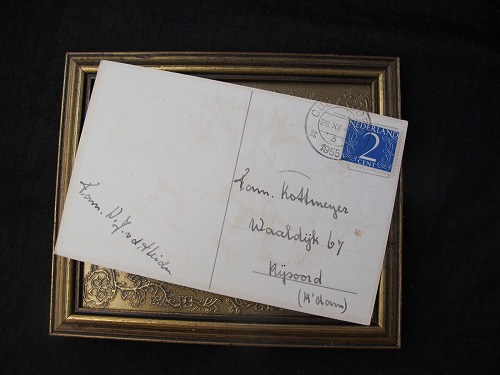 Fam. D. J. v d Heiden
28.XII
3
1955
NEDERLAND
2
CENT
Fam. Kottmeyer
Waaldijk 67
Rijsoord
(R'dam)